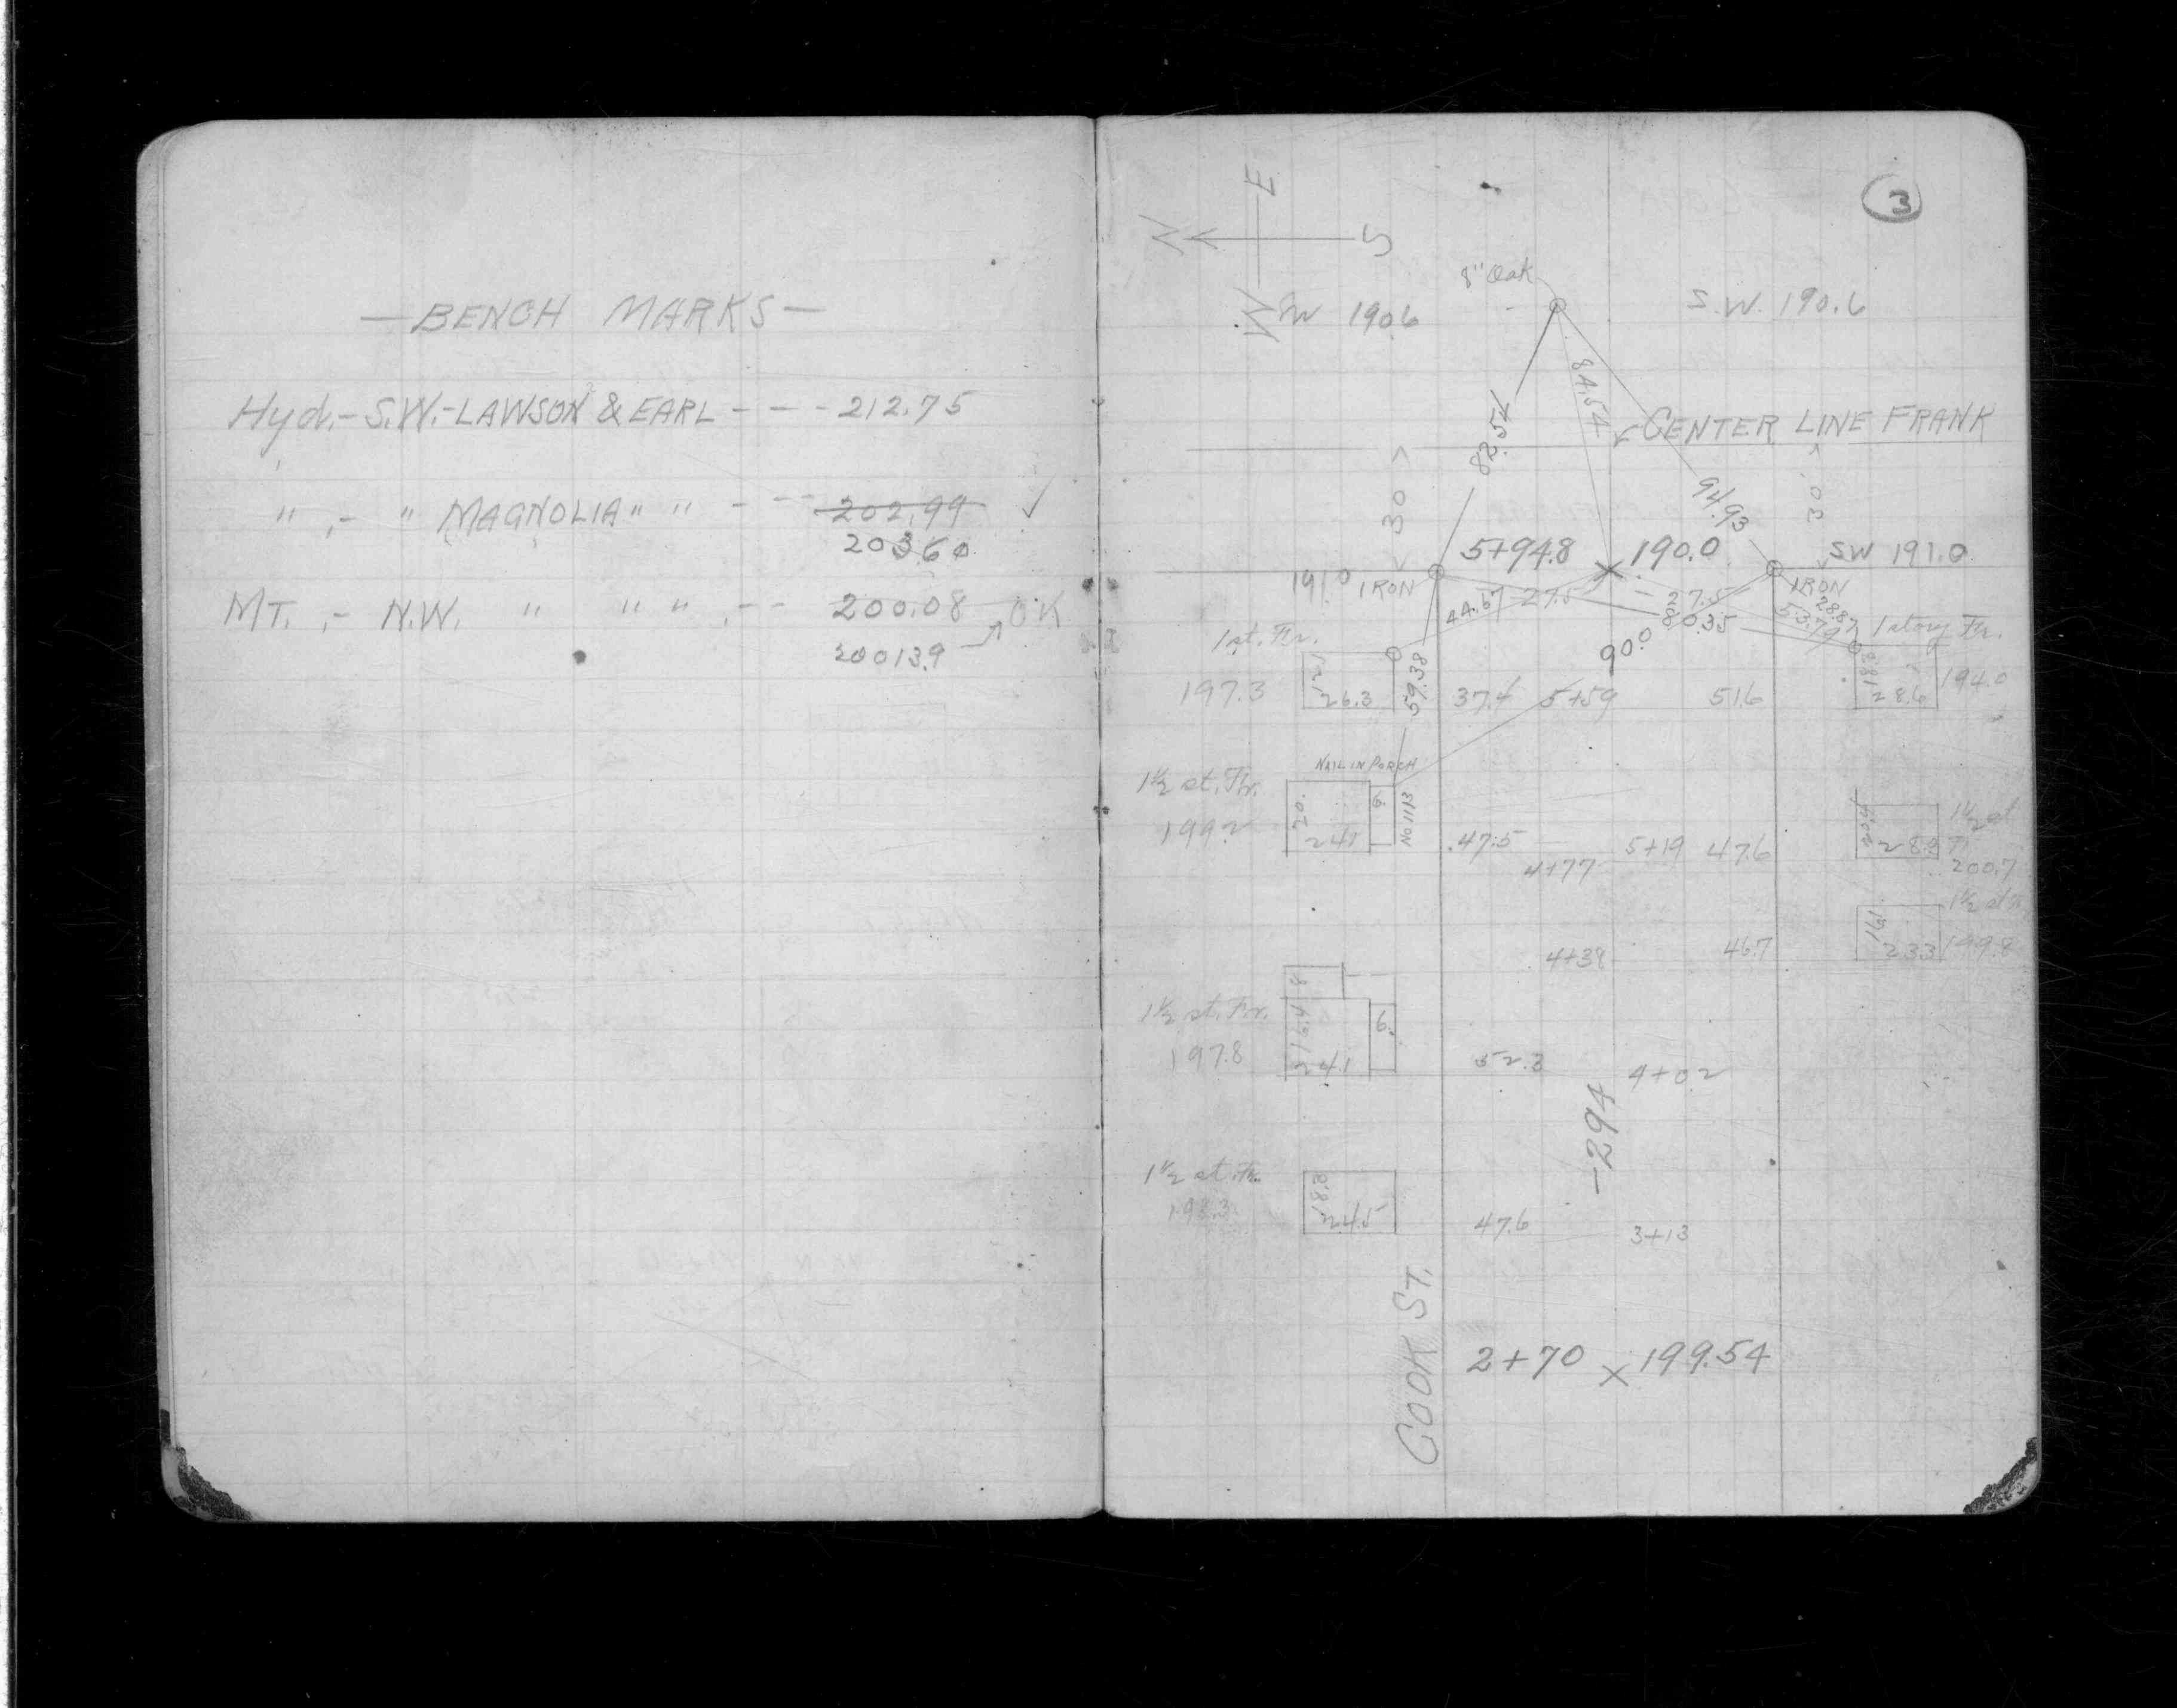 — BENCH MARKS —
Hyd.- S.W.- LAWSON & EARL - - - 212.75
" .- " MAGNOLIA " " - - - 202.99 ✓
203.60
MT. .- N.W. " " " .- - 200.08 OK
200139
3
E
N S
W
8" Oak
SW 190.6
S.W. 190.6
84.54
82.54
CENTER LINE FRANK
30
94.93
30'
5+94.8 190.0
SW 191.0
191.0 IRON
IRON
44.67 27.5
27.5
80.35
28.87
53.79
90.0
1 st. Fr.
1 story Fr.
197.3
12.1
26.3
59.38
37.4 5+59 51.6
18.8
28.6
194.0
NAIL IN PORCH
1½ st. Fr.
199.2
20.
24.1
6.
No 1113
47.5
4+77
5+19 47.6
28.3
1½ st
Fr
200.7
1½ st Fr
4+38
46.7
23.3
199.8
8
1½ st. Fr.
197.8
16.4
24.1
6.
52.3
4+02
-294
1½ st. Fr.
198.3
18.8
24.5
47.6
3+13
COOK ST.
2+70 × 199.54